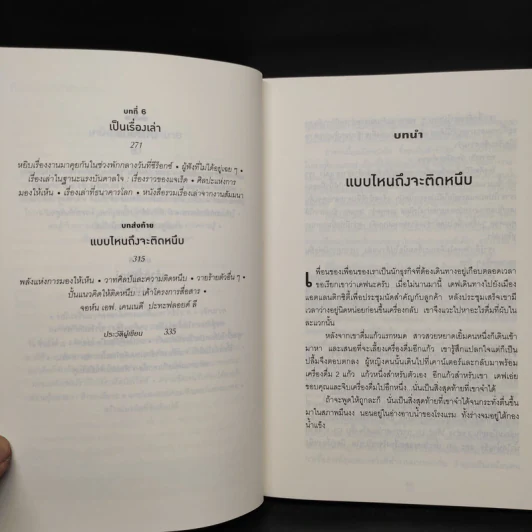 บทที่ 6
เป็นเรื่องเล่า
271
หยิบเรื่องงานมาคุยกันในช่วงพักกลางวันที่ซีร็อกซ์ • ผู้ฟังที่ไม่ได้อยู่เฉย ๆ •
เรื่องเล่าในฐานะแรงบันดาลใจ : เรื่องราวของแจเร็ด • ศิลปะแห่งการ
มองให้เห็น • เรื่องเล่าที่ธนาคารโลก • หนังสือรวมเรื่องเล่าจากงานสัมมนา
บทส่งท้าย
แบบไหนถึงจะติดหนึบ
315
พลังแห่งการมองให้เห็น • วาทศิลป์และความติดหนึบ • วายร้ายตัวอื่น ๆ •
ปั้นแนวคิดให้ติดหนึบ : เค้าโครงการสื่อสาร •
จอห์น เอฟ. เคนเนดี ปะทะฟลอยด์ ลี
ประวัติผู้เขียน 335
บทนำ
แบบไหนถึงจะติดหนึบ
เพื่อนของเพื่อนของเราเป็นนักธุรกิจที่ต้องเดินทางอยู่เกือบตลอดเวลา
ขอเรียกเขาว่าเดฟนะครับ เมื่อไม่นานมานี้ เดฟเดินทางไปยังเมือง
แอตแลนติกซิตีเพื่อประชุมนัดสำคัญกับลูกค้า หลังประชุมเสร็จเขามี
เวลาว่างอยู่นิดหน่อยก่อนขึ้นเครื่องกลับ เขาจึงแวะไปหาอะไรดื่มที่ผับใน
ละแวกนั้น
หลังจากเขาดื่มแก้วแรกหมด สาวสวยหยาดเยิ้มคนหนึ่งก็เดินเข้า
มาหา และเสนอที่จะเลี้ยงเครื่องดื่มอีกแก้ว เขารู้สึกแปลกใจแต่ก็เป็น
ปลื้มจึงตอบตกลง ผู้หญิงคนนั้นเดินไปที่เคาน์เตอร์และกลับมาพร้อม
เครื่องดื่ม 2 แก้ว แก้วหนึ่งสำหรับตัวเอง อีกแก้วสำหรับเขา เดฟเอ่ย
ขอบคุณและจิบเครื่องดื่มไปอึกหนึ่ง นั่นเป็นสิ่งสุดท้ายที่เขาจำได้
ถ้าจะพูดให้ถูกละก็ นั่นเป็นสิ่งสุดท้ายที่เขาจำได้จนกระทั่งตื่นขึ้น
มาในสภาพมึนงง นอนอยู่ในอ่างอาบน้ำของโรงแรม ทั้งร่างจมอยู่ใต้กอง
น้ำแข็ง